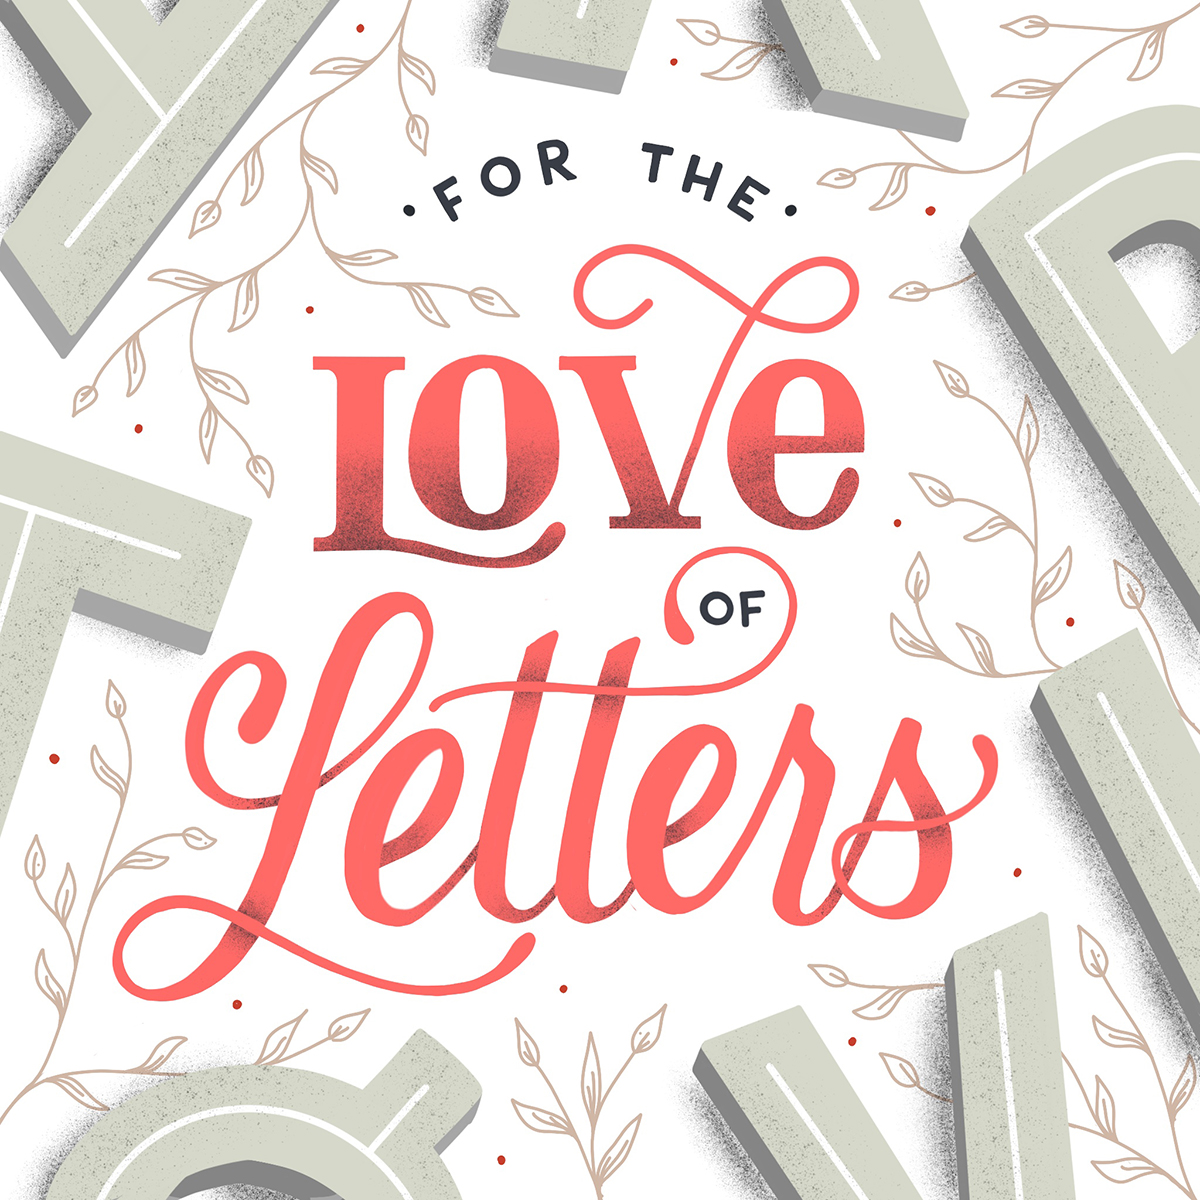 FOR THE
Love
OF
Letters